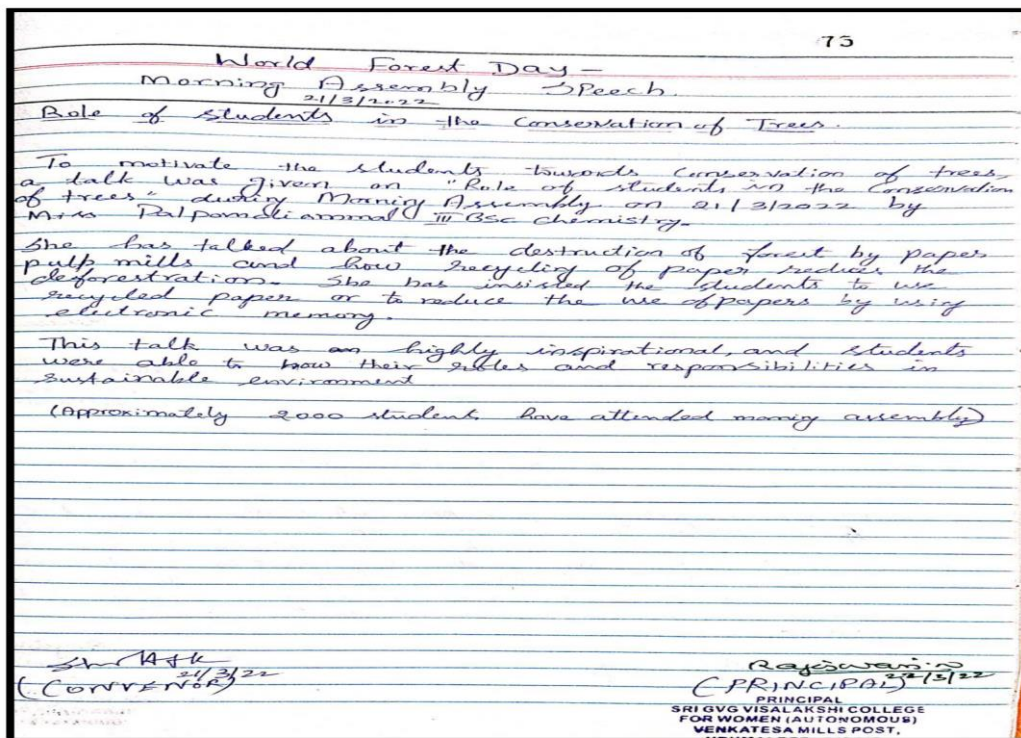 75
World Forest Day -
Morning Assembly Speech.
21/3/2022
Role of students in the Conservation of Trees.
To motivate the students towards conservation of trees,
a talk was given on "Role of students in the Conservation
of trees" during Morning Assembly on 21/3/2022 by
Miss Palpomaliammal III BSc chemistry.
She has talked about the destruction of forest by paper
pulp mills and how recycling of paper reduces the
deforestration. She has insisted the students to use
recycled paper or to reduce the use of papers by using
electronic memory.
This talk was an highly inspirational, and students
were able to know their roles and responsibilities in
sustainable environment
(Approximately 2000 students have attended morning assembly)
21/3/22
(CONVENOR)
Rajeswari.N
22/3/22
(PRINCIPAL)
PRINCIPAL
SRI GVG VISALAKSHI COLLEGE
FOR WOMEN (AUTONOMOUS)
VENKATESA MILLS POST,